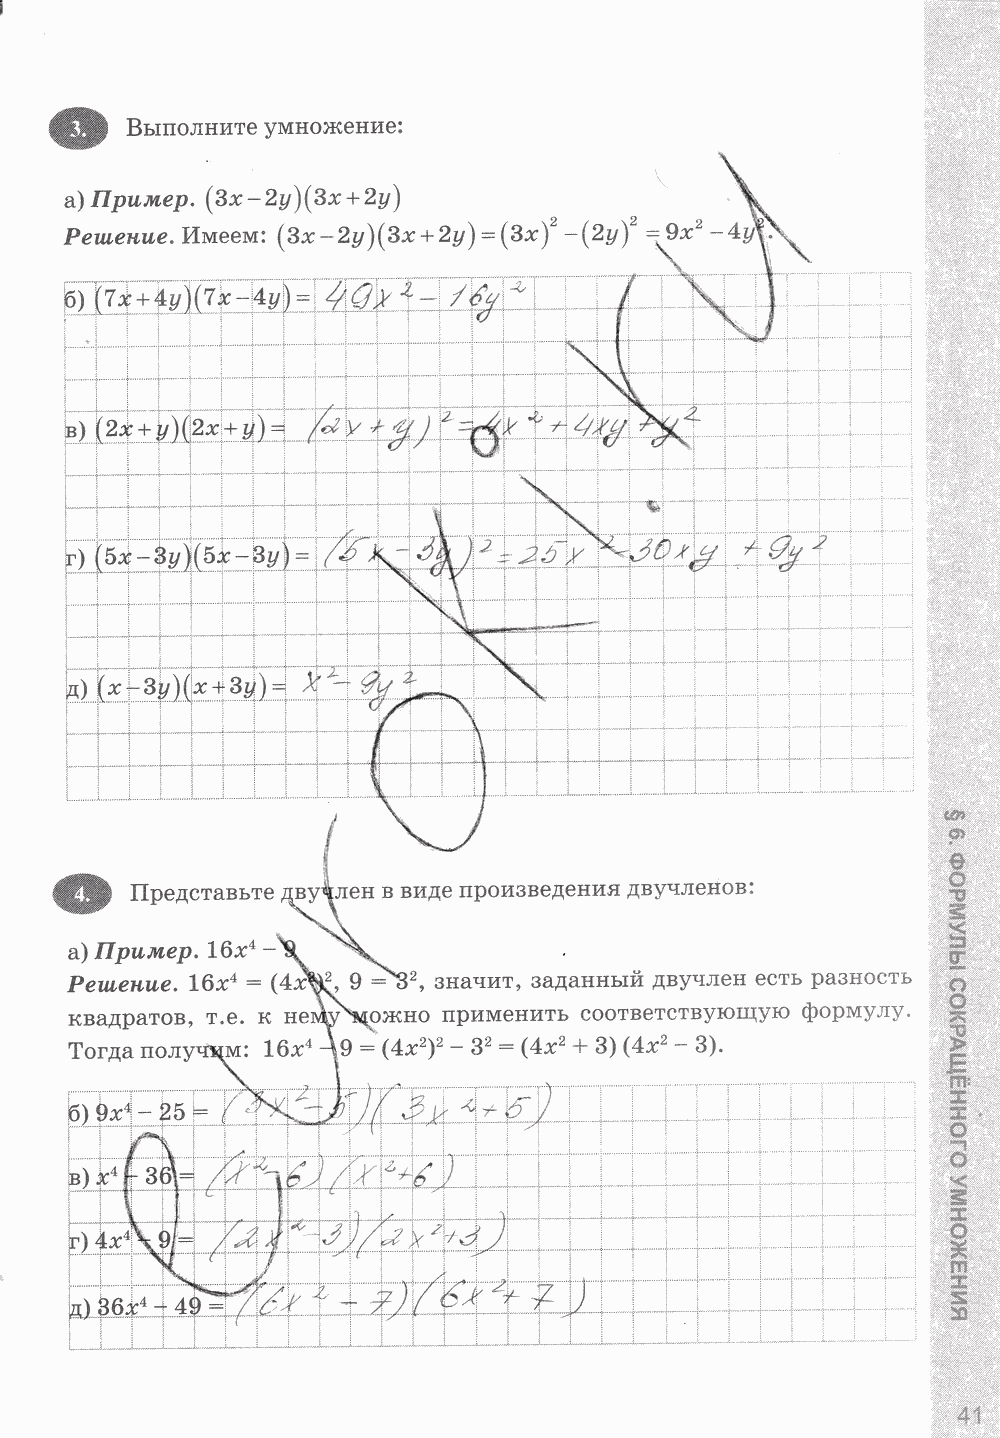 3. Выполните умножение:
а) Пример. (3x − 2y)(3x + 2y)
Решение. Имеем: (3x − 2y)(3x + 2y) = (3x)² − (2y)² = 9x² − 4y².
б) (7x + 4y)(7x − 4y) = 49x² − 16y²
в) (2x + y)(2x + y) = (2x + y)² = 4x² + 4xy + y²
г) (5x − 3y)(5x − 3y) = (5x − 3y)² = 25x² − 30xy + 9y²
д) (x − 3y)(x + 3y) = x² − 9y²
4. Представьте двучлен в виде произведения двучленов:
а) Пример. 16x⁴ − 9
Решение. 16x⁴ = (4x²)², 9 = 3², значит, заданный двучлен есть разность
квадратов, т.е. к нему можно применить соответствующую формулу.
Тогда получим: 16x⁴ − 9 = (4x²)² − 3² = (4x² + 3) (4x² − 3).
б) 9x⁴ − 25 = (3x² − 5)(3x² + 5)
в) x⁴ − 36 = (x² − 6)(x² + 6)
г) 4x⁴ − 9 = (2x² − 3)(2x² + 3)
д) 36x⁴ − 49 = (6x² − 7)(6x² + 7)
§ 6. ФОРМУЛЫ СОКРАЩЁННОГО УМНОЖЕНИЯ
41